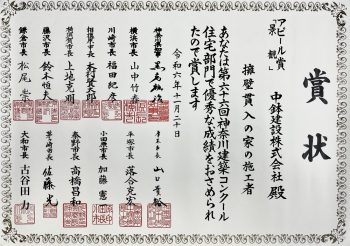 賞状
アピール賞
「景観」
中鉢建設株式会社 殿
擁壁貫入の家の施工者
あなたは第六十六回神奈川建築コンクール
住宅部門で優秀な成績をおさめられ
たので賞します
令和六年十一月二十日
神奈川県知事 黒岩祐治
横浜市長 山中竹春
川崎市長 福田紀彦
相模原市長 本村賢太郎
横須賀市長 上地克明
藤沢市長 鈴木恒夫
鎌倉市長 松尾崇
厚木市長 山口貴裕
平塚市長 落合克宏
小田原市長 加藤憲一
秦野市長 高橋昌和
茅ヶ崎市長 佐藤光
大和市長 古谷田力